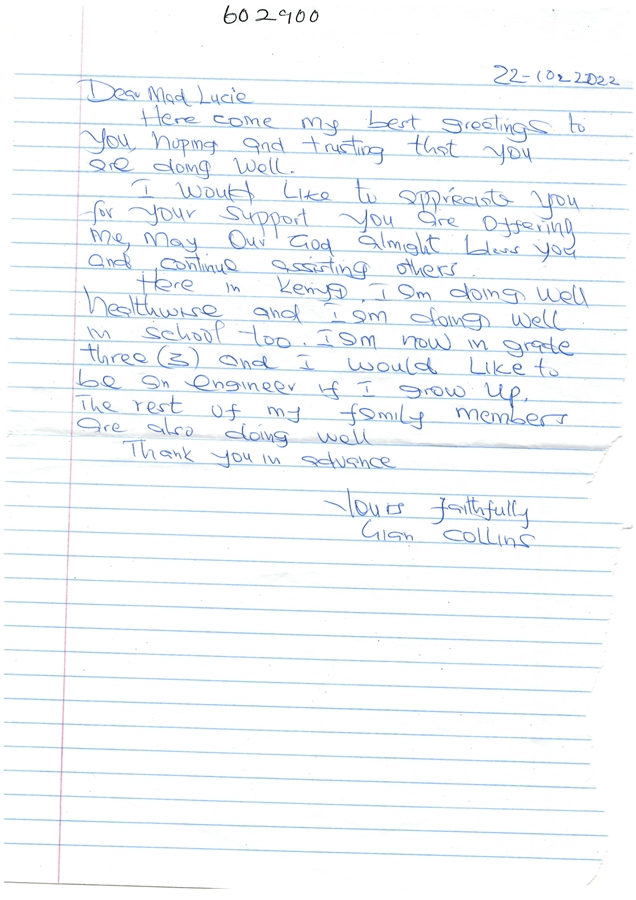 602900
22-10-2022
Dear Mad Lucie
Here come my best greetings to
you, hoping and trusting that you
are doing well.
I would like to appreciate you
for your support you are offering
me, may our God almight bless you
and continue assisting others.
Here in Kenya, I am doing well
healthwise and I am doing well
in school too. I am now in grade
three (3) and I would like to
be an engineer if I grow up.
The rest of my family members
are also doing well
Thank you in advance
Yours faithfully
Gian Collins